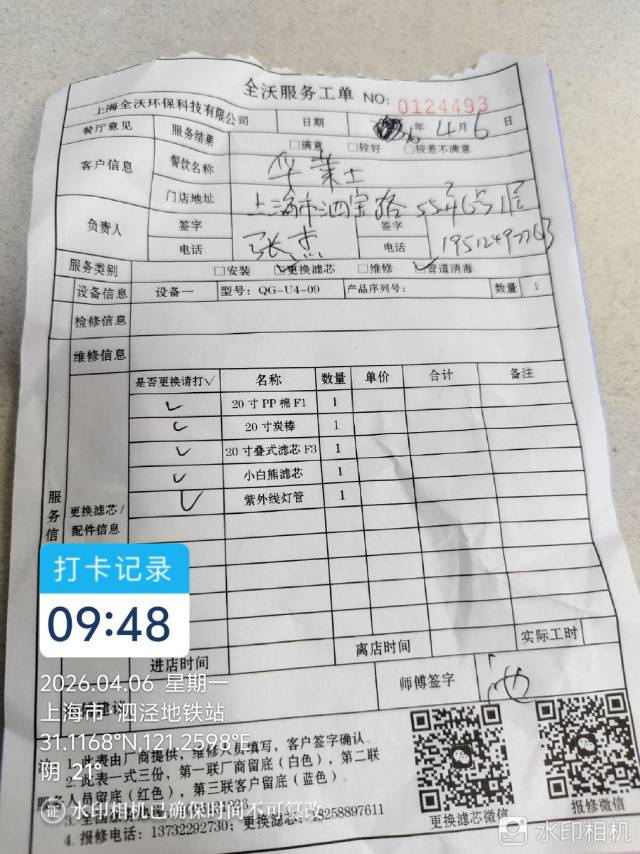 全沃服务工单 NO: 0124493
上海全沃环保科技有限公司 日期 年 4月6日
餐厅意见 服务结果 □满意 □较好 □较差不满意
客户信息 餐饮名称 华莱士
门店地址 上海市泗宝路55弄6号1层
负责人 签字 张杰 签字
电话 电话 19512497763
服务类别 □安装 ☑更换滤芯 □维修 ☑管道消毒
设备信息 设备一 型号: QG-U4-09 产品序列号: 数量 1
检修信息
维修信息
是否更换请打√ 名称 数量 单价 合计 备注
✓ 20寸PP棉F1 1
✓ 20寸炭棒 1
✓ 20寸叠式滤芯F3 1
✓ 小白熊滤芯 1
✓ 紫外线灯管 1
服务信
更换滤芯/
配件信息
打卡记录
09:48
进店时间 离店时间 实际工时
师傅签字
2026.04.06 星期一
上海市·泗泾地铁站
31.1168°N,121.2598°E
阴 21°
建议
1. 此表由厂商提供,维修人员填写,客户签字确认。
2. 此表一式三份,第一联厂商留底(白色),第二联
服务人员留底(红色),第三联客户留底(蓝色)。
水印相机已确保时间不可篡改
3. 全国
4. 报修电话: 13732292730; 更换滤芯: 258897611
更换滤芯微信 报修微信
水印相机